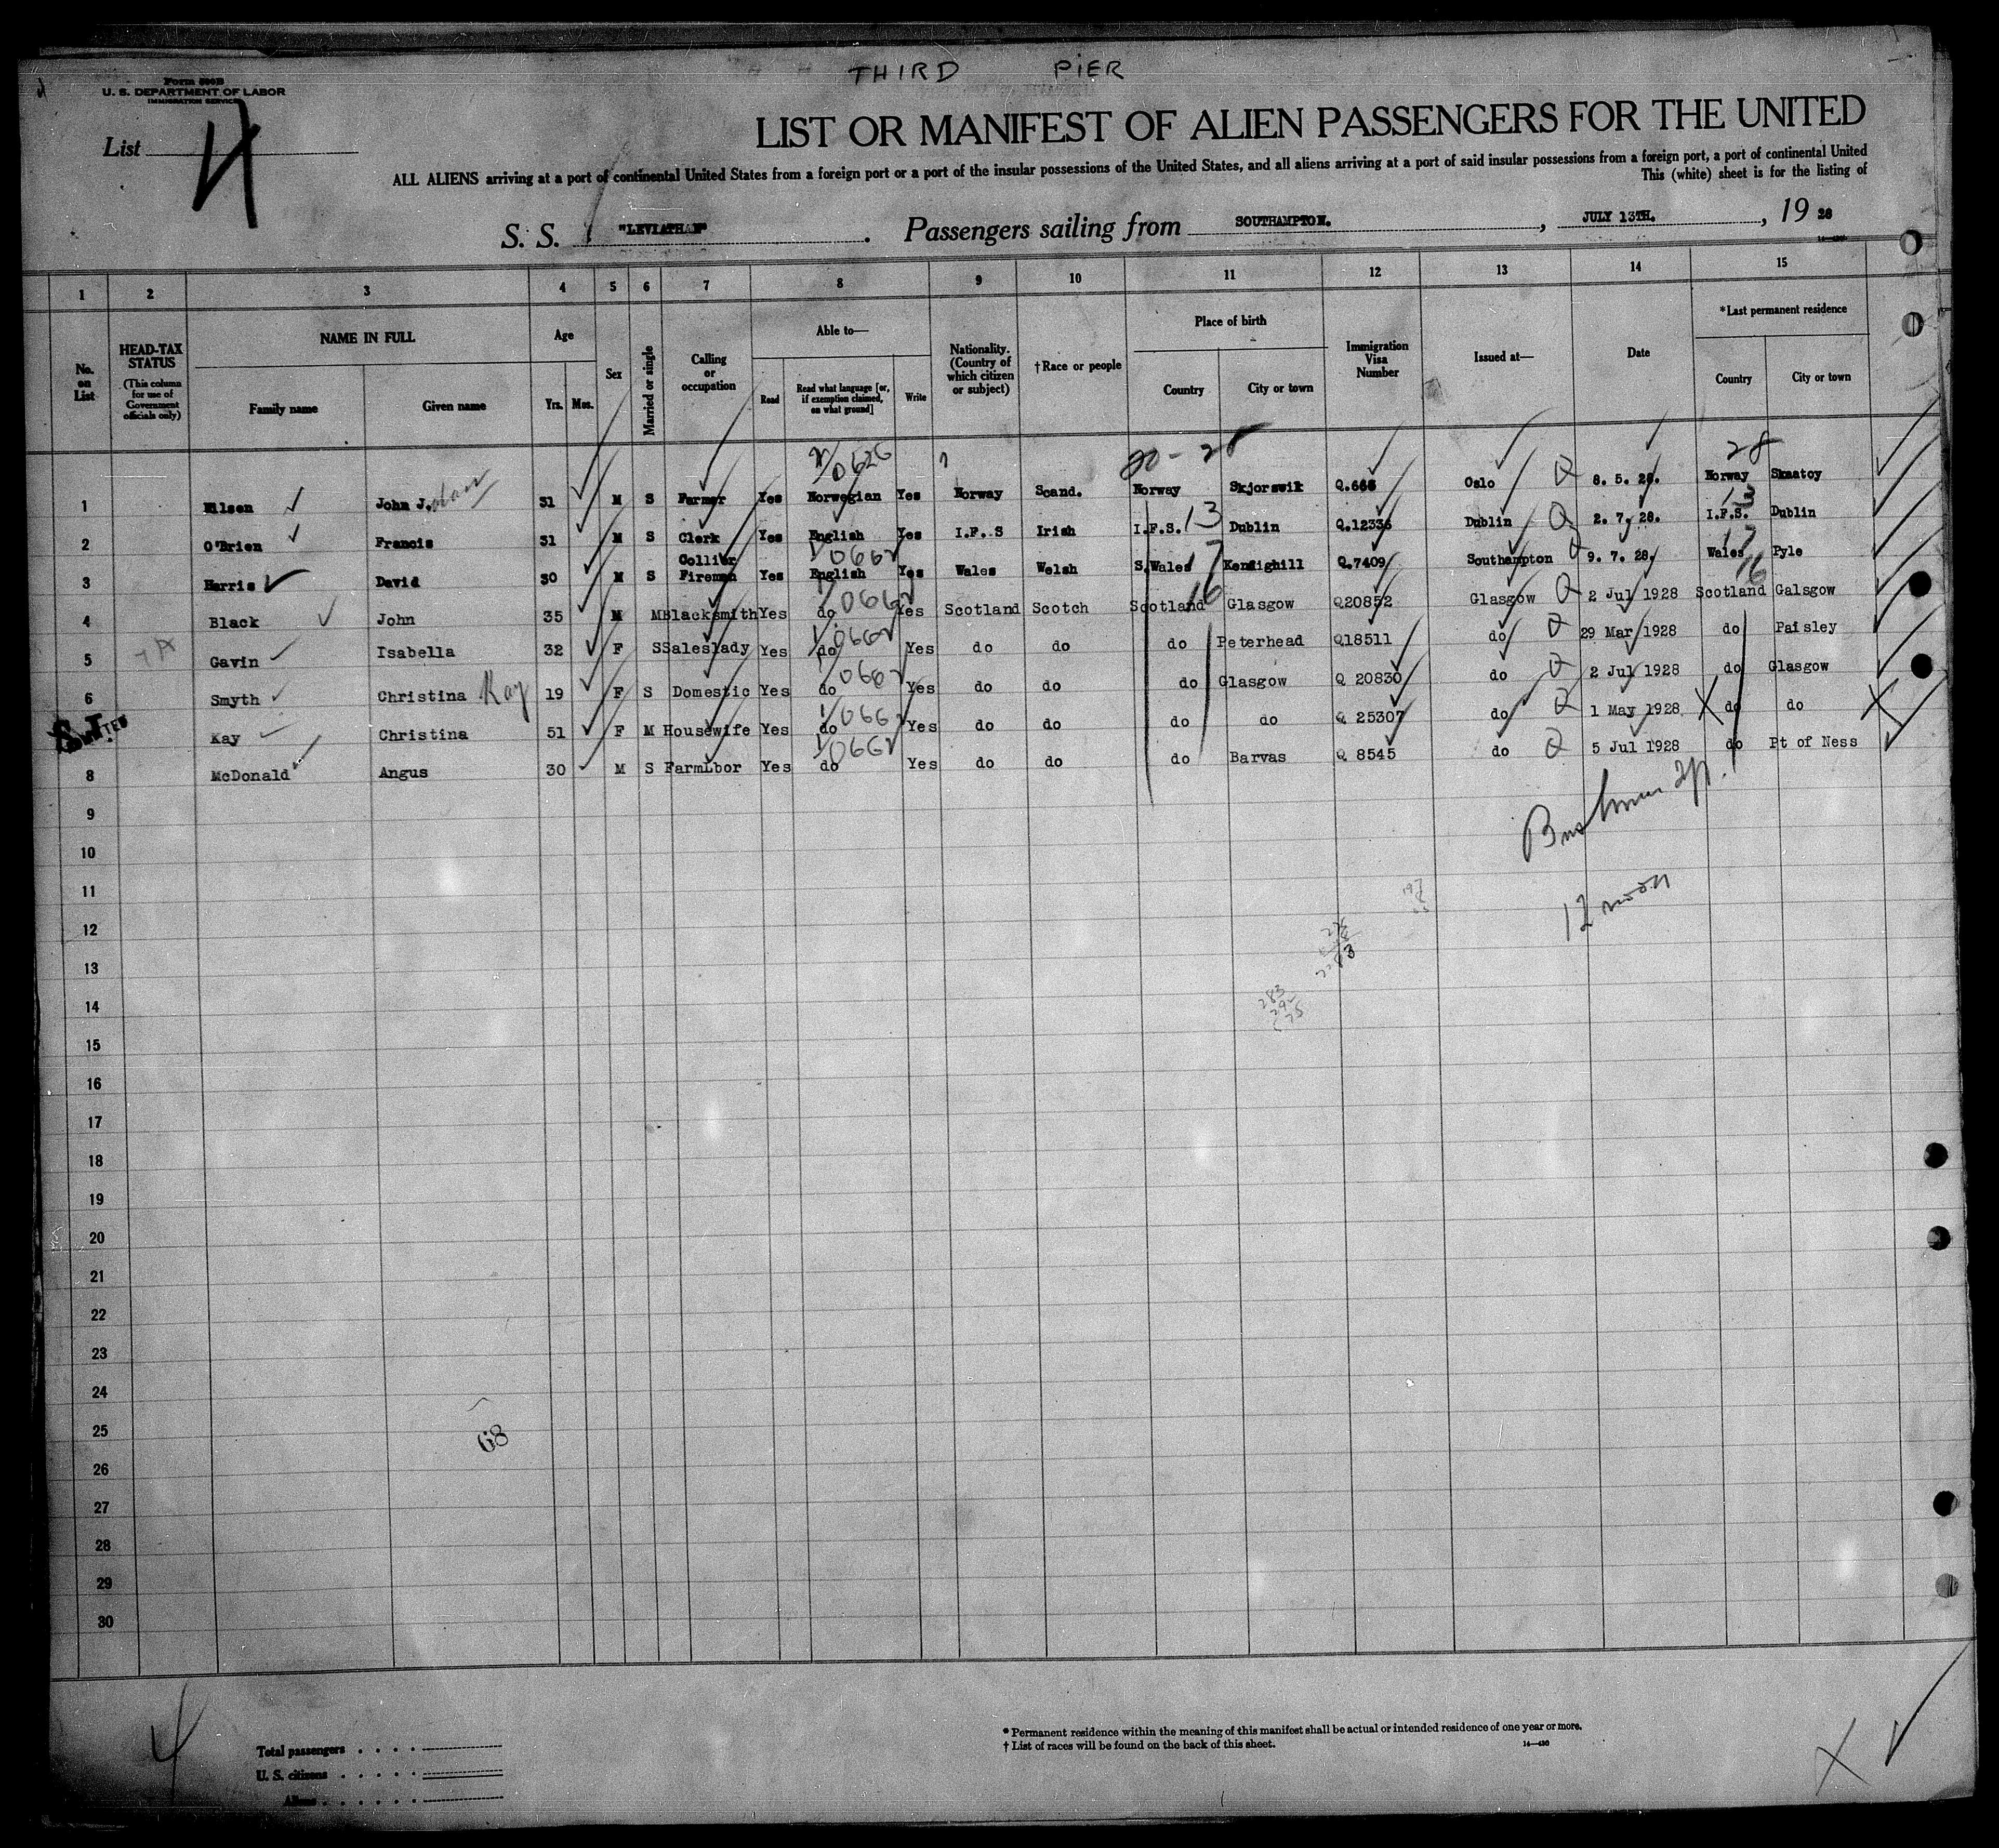 THIRD PIER
Form 500B
U. S. DEPARTMENT OF LABOR
IMMIGRATION SERVICE
List 4
LIST OR MANIFEST OF ALIEN PASSENGERS FOR THE UNITED
ALL ALIENS arriving at a port of continental United States from a foreign port or a port of the insular possessions of the United States, and all aliens arriving at a port of said insular possessions from a foreign port, a port of continental United
This (white) sheet is for the listing of
S. S. "LEVIATHAN". Passengers sailing from SOUTHAMPTON. , JULY 13TH. , 19 28
1 2 3 4 5 6 7 8 9 10 11 12 13 14 15
No. on List
HEAD-TAX STATUS (This column for use of Government officials only)
NAME IN FULL
Family name Given name
Age
Yrs. Mos.
Sex
Married or single
Calling or occupation
Able to—
Read Read what language [or, if exemption claimed, on what ground] Write
Nationality. (Country of which citizen or subject)
†Race or people
Place of birth
Country City or town
Immigration Visa Number
Issued at—
Date
*Last permanent residence
Country City or town
2/0626 28 28
1 Nilsen John J. 31 M S Farmer Yes Norwegian Yes Norway Scand. Norway Skjorswik Q.666 Oslo Q 8. 5. 28. Norway Skaatoy
13 13
2 O'Brien Francis 31 M S Clerk Yes English Yes I.F.S Irish I.F.S. Dublin Q.12336 Dublin Q 2. 7. 28. I.F.S. Dublin
1/0662 17 17
3 Harris David 30 M S Collier Fireman Yes English Yes Wales Welsh S.Wales Kenfighill Q.7409 Southampton Q 9. 7. 28. Wales Pyle
1/0662 16 16
4 Black John 35 M M Blacksmith Yes do Yes Scotland Scotch Scotland Glasgow Q20852 Glasgow Q 2 Jul 1928 Scotland Galsgow
1/0662
5 Gavin Isabella 32 F S Saleslady Yes do Yes do do do Peterhead Q18511 do Q 29 Mar 1928 do Paisley
1/0662
6 Smyth Christina Kay 19 F S Domestic Yes do Yes do do do Glasgow Q 20830 do Q 2 Jul 1928 do Glasgow
1/0662
Kay Christina 51 F M Housewife Yes do Yes do do do do Q 25307 do Q 1 May 1928 X do do X
1/0662
8 McDonald Angus 30 M S FarmLbor Yes do Yes do do do Barvas Q 8545 do Q 5 Jul 1928 do Pt of Ness
9
10
11
12 noon
12
13
14
15
16
17
18
19
20
21
22
23
24
25
68
26
27
28
29
30
4
Total passengers
U. S. citizens
Aliens
* Permanent residence within the meaning of this manifest shall be actual or intended residence of one year or more.
† List of races will be found on the back of this sheet.
14—430
X